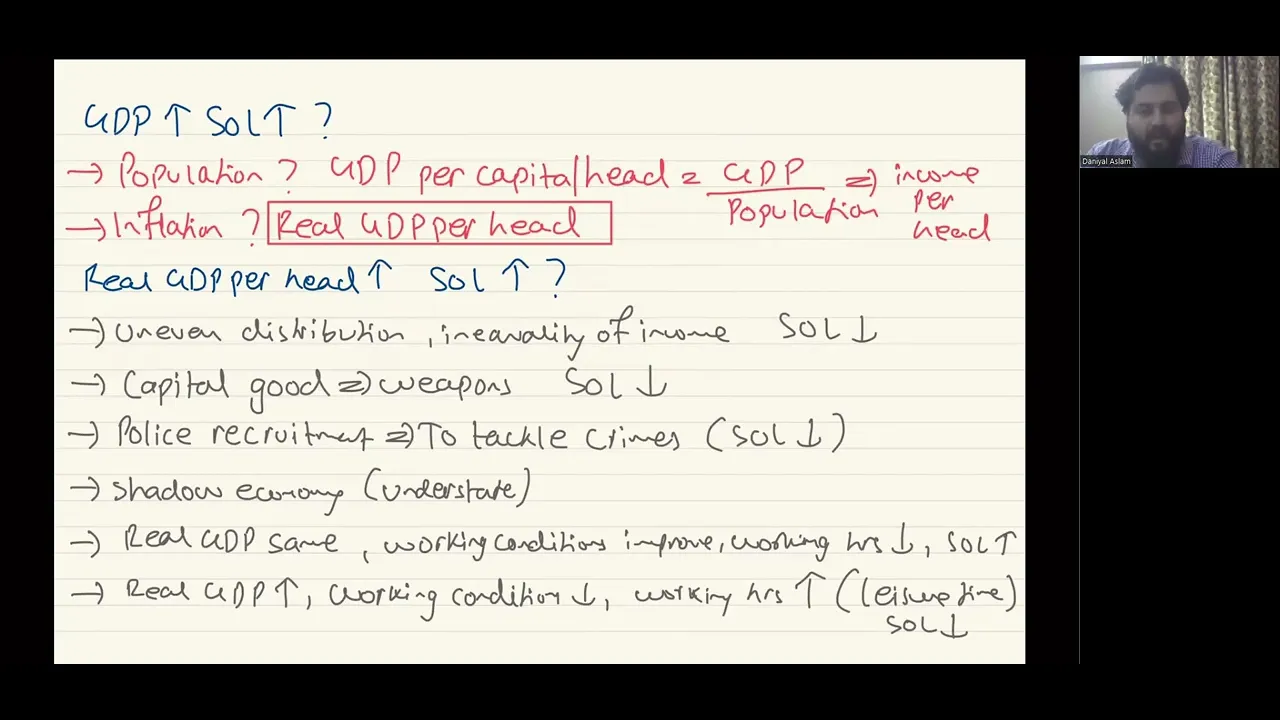 GDP ↑ SOL ↑ ?
→ Population ? GDP per capita/head = GDP / Population ⇒ income per head
→ Inflation ? Real GDP per head
Real GDP per head ↑ SOL ↑ ?
→ Uneven distribution, inequality of income SOL ↓
→ Capital good ⇒ weapons SOL ↓
→ Police recruitment ⇒ To tackle crimes (SOL ↓)
→ Shadow economy (understate)
→ Real GDP same, working conditions improve, working hrs ↓, SOL ↑
→ Real GDP ↑, working condition ↓, working hrs ↑ (leisure time)
SOL ↓
Daniyal Aslam